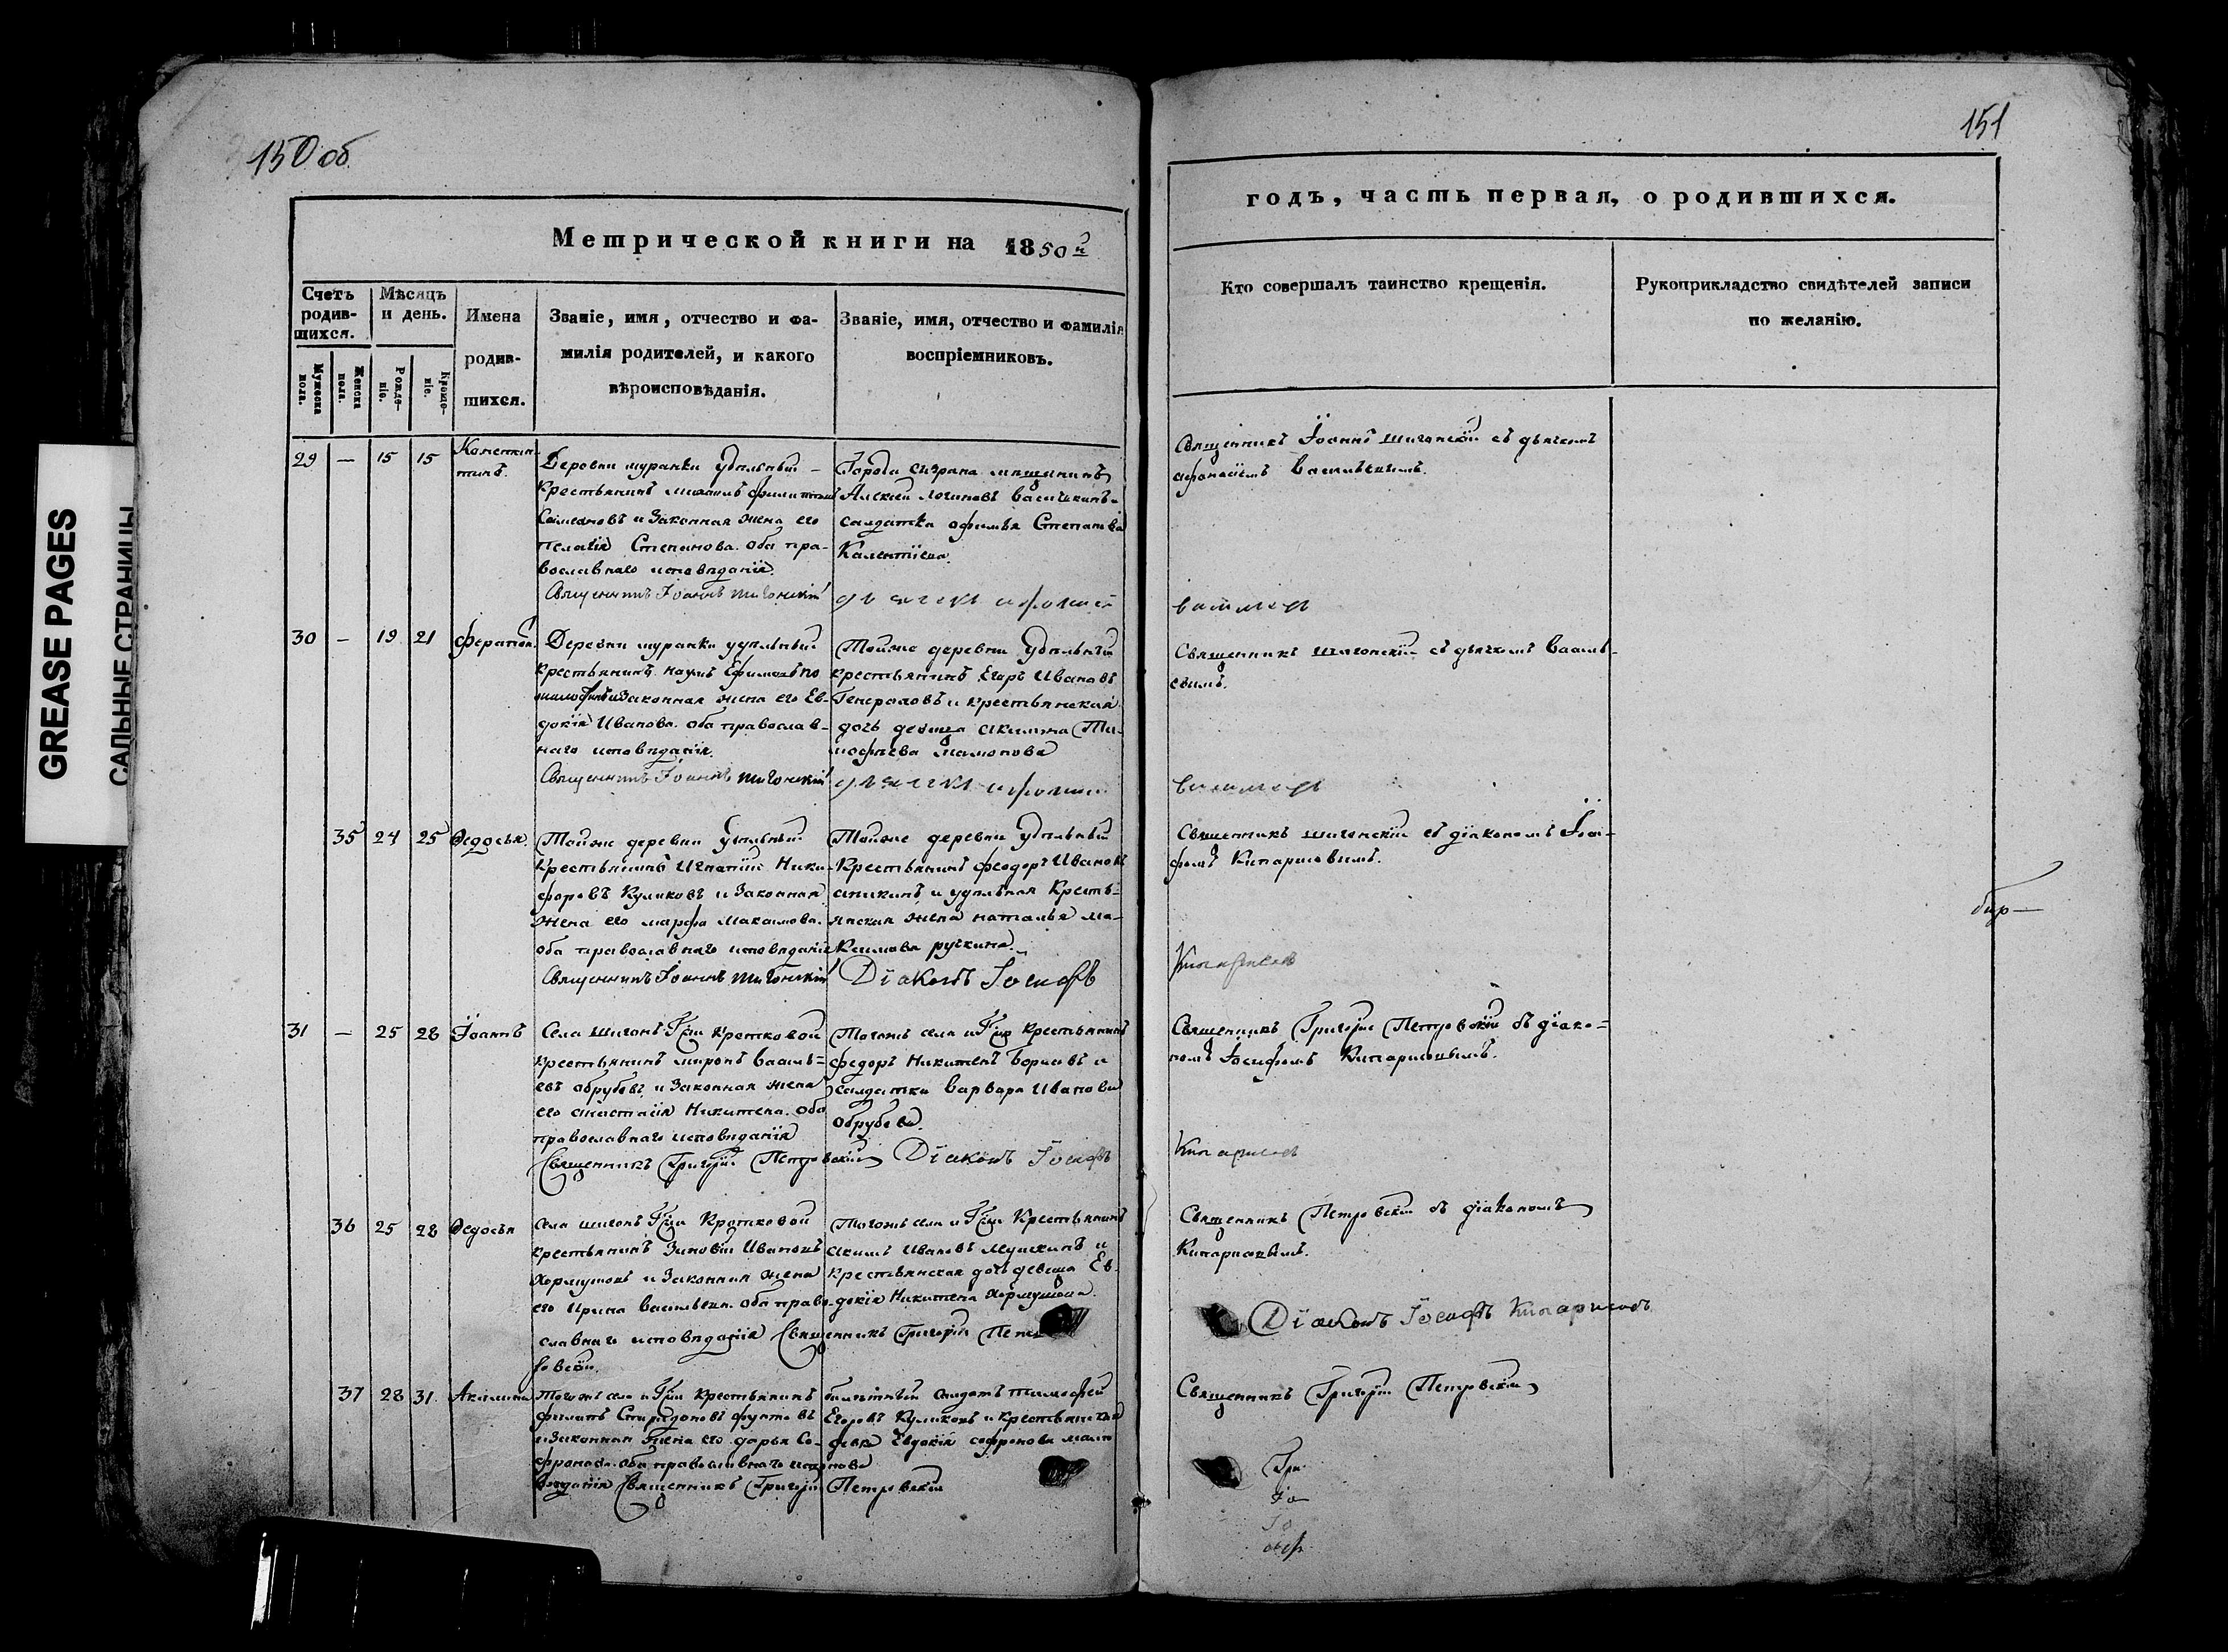 GREASE PAGES
САЛЬНЫЕ СТРАНИЦЫ
150 об.
Метрической книги на 1850й
Счетъ родив-
шихся.
Мѣсяцъ и день.
Имена родив-
шихся.
Званіе, имя, отчество и фа-
милія родителей, и какого
вѣроисповѣданія.
Званіе, имя, отчество и фамилія
воспріемниковъ.
Мужеска пола.
Женска пола.
Рожде-
ніе.
Креще-
ніе.
29 — 15 15 Констан-
тинъ.
Деревни муранки удѣльный
крестьянинъ
Семеновъ и законная жена его
Пелагія Степанова. оба пра-
вославнаго исповѣданія.
Священникъ Іоаннъ Шигонскій
Города Сызрана мѣщанинъ
Алексѣй Логиновъ
салдатка офимья Степанова
дьячекъ афонасей
30 — 19 21 Ферапон.
Деревни муранки удѣльный
крестьянинъ наумъ Ефимовъ
и законная жена его Ев-
докія Иванова. оба православ-
наго исповѣданія.
Священникъ Іоаннъ Шигонскій
Тойже деревни удѣльный
крестьянинъ Егоръ Ивановъ
Генераловъ и крестьянская
дочь девица акилина Ти-
мофѣева мамонова
дьячекъ афонасей
35 24 25 Федосья.
Тойже деревни удѣльный
крестьянинъ Игнатій Ники-
форовъ Куликовъ и законная
жена его марфа Максимова.
оба православнаго исповѣданія
Священникъ Іоаннъ Шигонскій
Тойже деревни удѣльный
крестьянинъ феодоръ Ивановъ
аникинъ и удѣльная кресть-
янская жена наталья ма-
ксимова ручкина.
Діаконъ Іосифъ
31 — 25 28 Іоаннъ
Села шигонъ Гжи Кротковой
крестьянинъ миронъ василь-
евъ обрубовъ и законная жена
его анастасія Никитина. оба
православнаго исповѣданія
Священникъ Григорій Петровскій
Тогожъ села и Гжи крестьянинъ
федоръ Никитинъ Борисовъ и
салдатка варвара Иванова
обрубова.
Діаконъ Іосифъ
36 25 28 Федосья
Села шигонъ Гжи Кротковой
крестьянинъ Зиновій Ивановъ
Хормушовъ и законная жена
его Ирина васильева. оба право-
славнаго исповѣданія Священникъ Григорій Пет
ровскій.
Тогожъ села и Гжи крестьянинъ
акимъ Ивановъ Мушкинъ и
крестьянская дочь девица Ев-
докія Никитина Хормушова.
37 28 31. Акилина
Тогожъ села и Гжи крестьянинъ
филатъ Спиридоновъ
и законная жена его дарья Со-
фронова. оба православнаго испо
вѣданія Священникъ Григорій Петровскій
билетный салдатъ тимофей
Егоровъ Куликовъ и крестьянская
девка Евдокія софронова мамо
нова
151
годъ, часть первая, о родившихся.
Кто совершалъ таинство крещенія.
Рукоприкладство свидѣтелей записи
по желанію.
Священникъ Іоаннъ шигонскій съ дьячкомъ
афанасіемъ васильевымъ.
васильев
Священникъ шигонскій съ дьячкомъ василь-
евымъ.
васильев
Священникъ шигонскій съ діакономъ Іоси-
фомъ Кипарисовымъ.
Кипарисовъ
Священникъ Григорій Петровскій съ діако-
номъ Іосифомъ Кипарисовымъ.
Кипарисовъ
Священникъ Петровскій съ діакономъ
Кипарисовымъ.
Діаконъ Іосифъ Кипарисовъ
Священникъ Григорій Петровскій
Гри
Іо
Іо